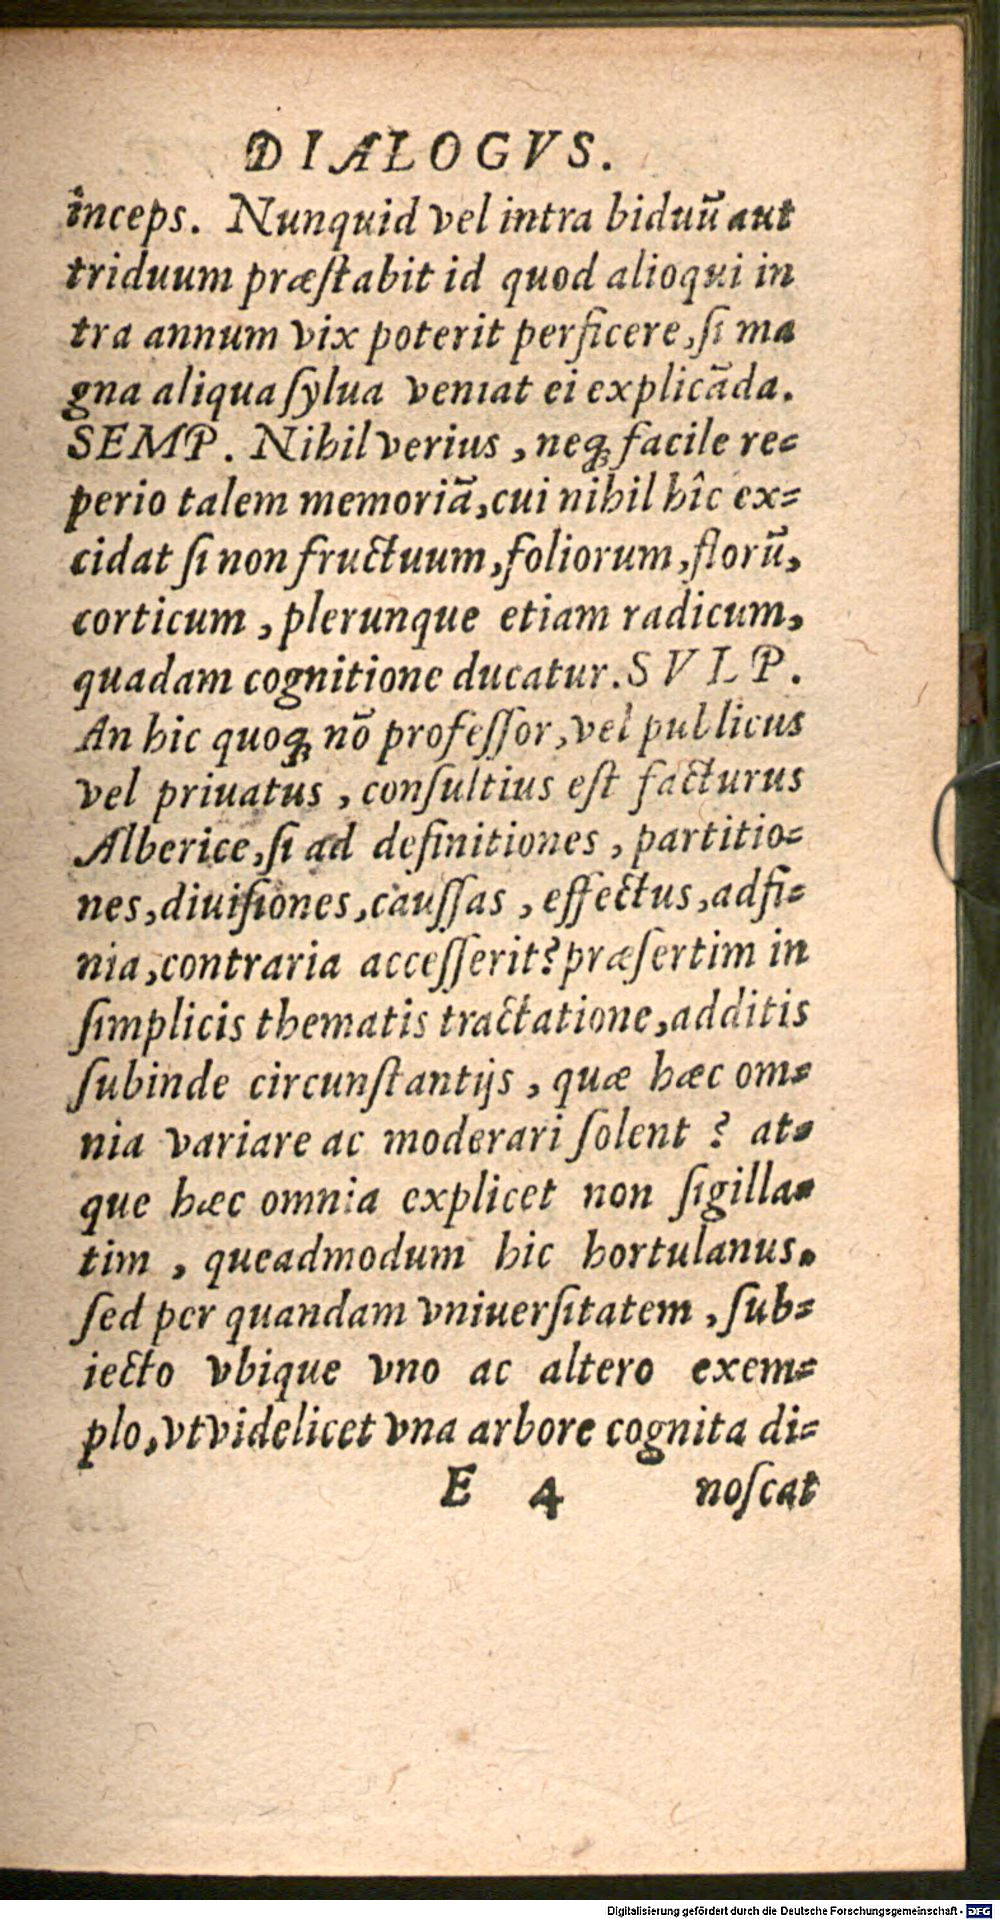 DIALOGVS.
inceps. Nunquid vel intra biduũ aut
triduum præſtabit id quod alioqui in
tra annum vix poterit perficere, ſi ma
gna aliqua ſylua veniat ei explicãda.
SEMP. Nihil verius, neq; facile re-
perio talem memoriã, cui nihil hîc ex-
cidat ſi non fructuum, foliorum, florũ,
corticum, plerunque etiam radicum,
quadam cognitione ducatur. SVLP.
An hic quoq; nõ profeſſor, vel publicus
vel priuatus, conſultius eſt facturus
Alberice, ſi ad definitiones, partitio-
nes, diuiſiones, cauſſas, effectus, adfi-
nia, contraria acceſſerit? præſertim in
ſimplicis thematis tractatione, additis
ſubinde circunſtantijs, quæ hæc om-
nia variare ac moderari ſolent? at-
que hæc omnia explicet non ſigilla-
tim, queadmodum hic hortulanus.
ſed per quandam vniuerſitatem, ſub-
iecto vbique vno ac altero exem-
plo, vt videlicet vna arbore cognita di-
E 4 noſcat
Digitalisierung gefördert durch die Deutsche Forschungsgemeinschaft - DFG